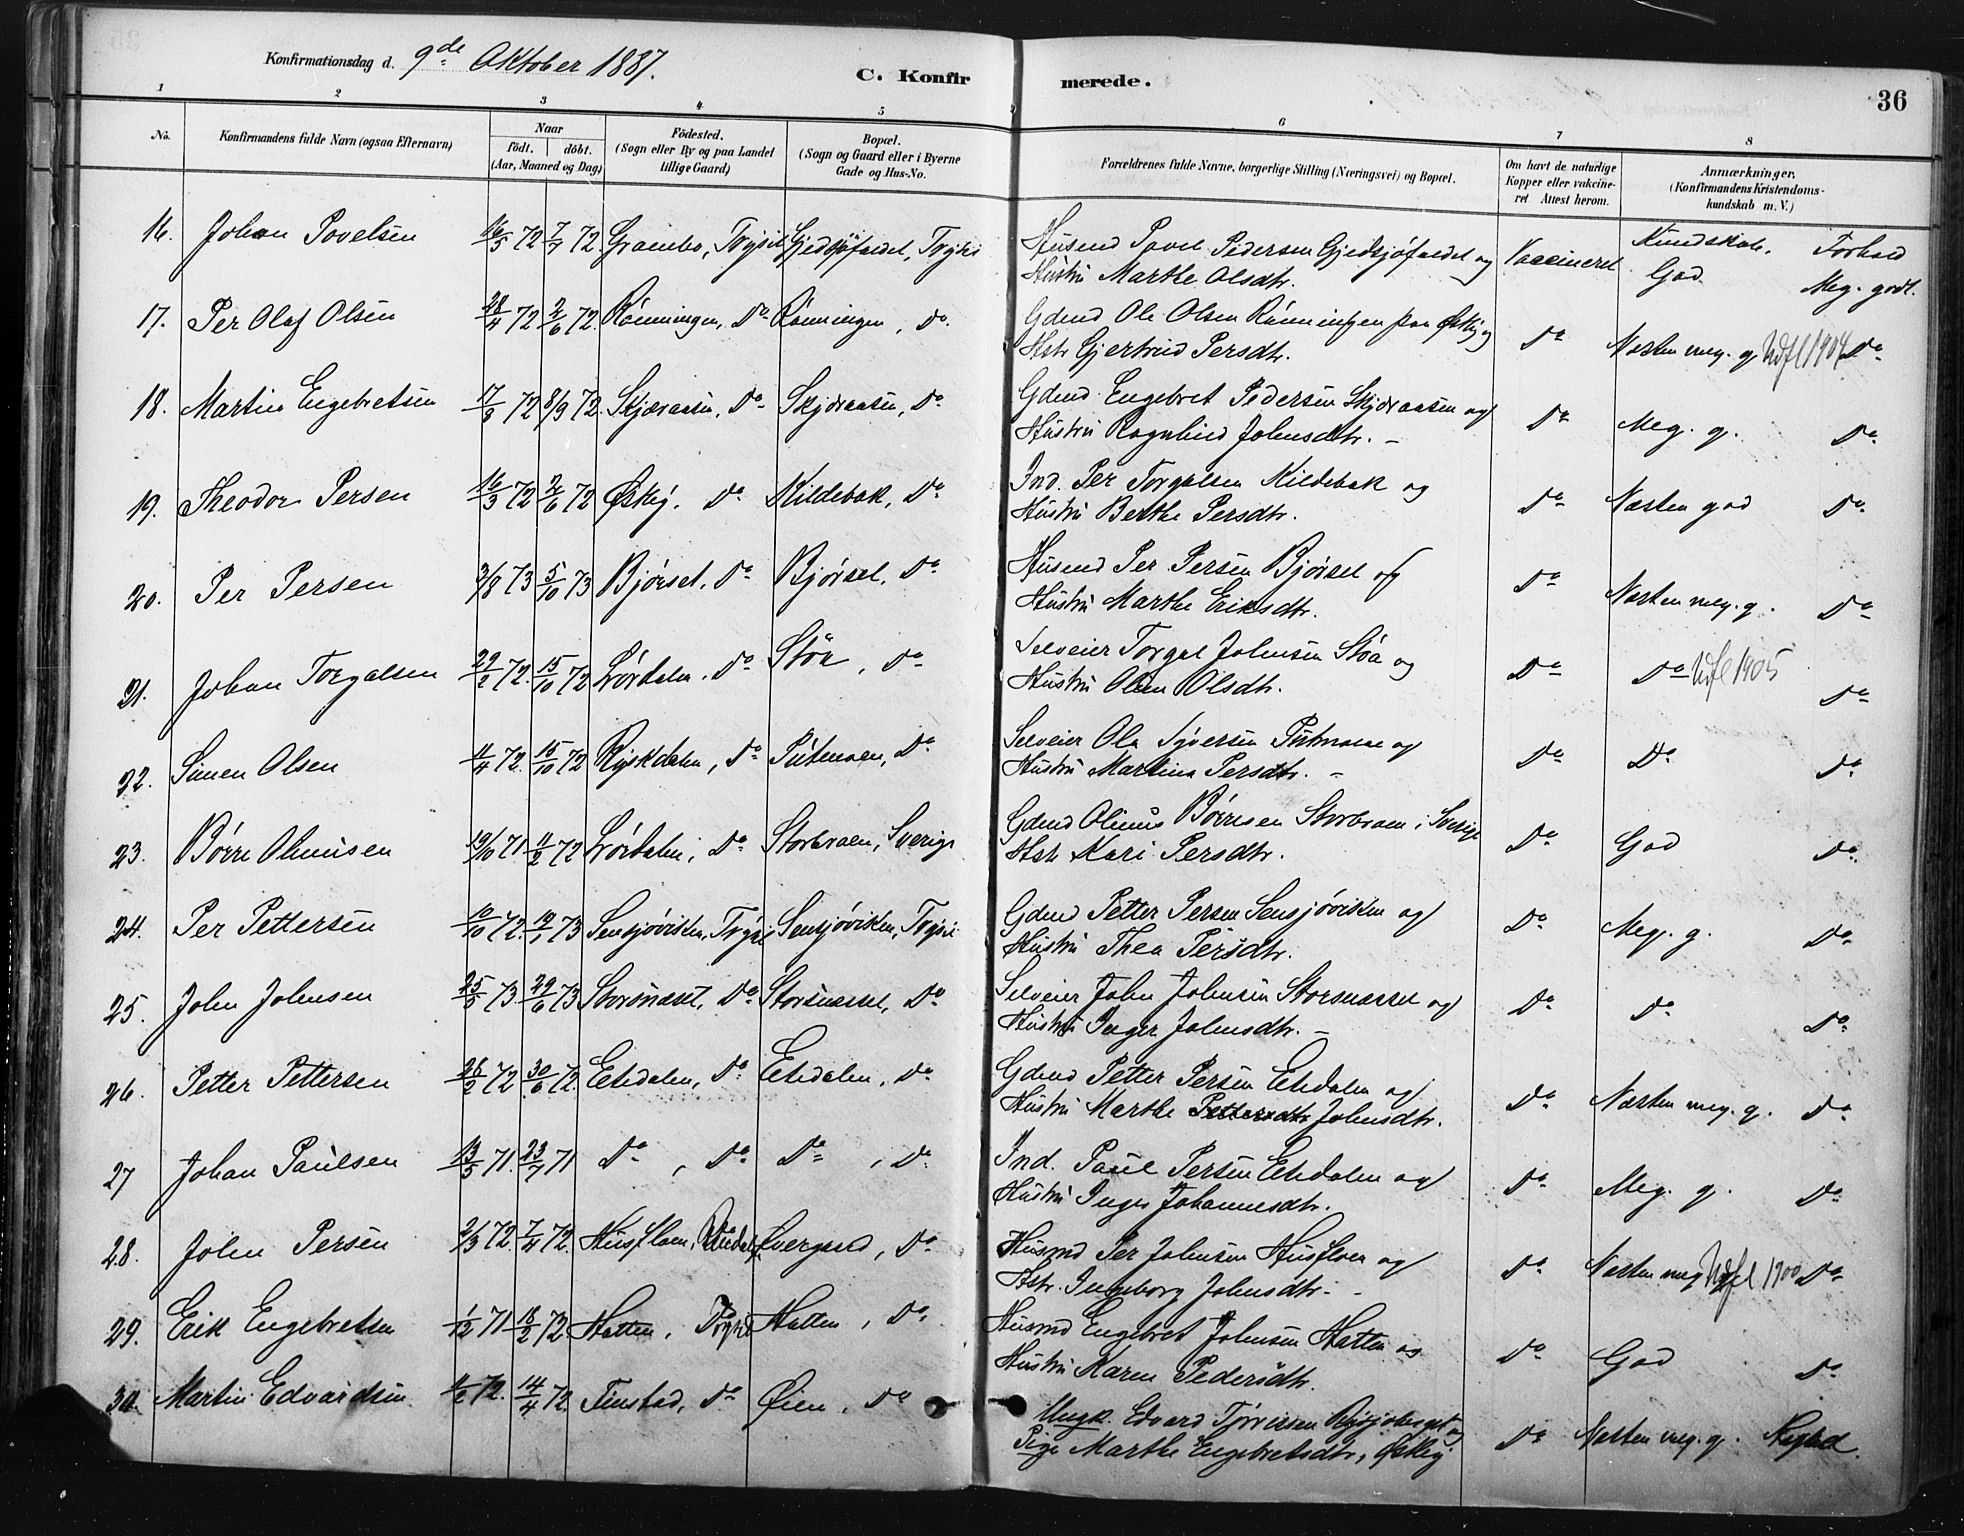 Konfirmationsdag d. 9de Oktober 1887.
C. Konfirmerede.
36
1 2 3 4 5 6 7 8
No.
Konfirmandens fulde Navn (ogsaa Efternavn)
Naar
födt. döbt.
(Aar, Maaned og Dag)
Födested.
(Sogn eller By og paa Landet
tillige Gaard)
Bopæl.
(Sogn og Gaard eller i Byerne
Gade og Hus-No.
Forældrenes fulde Navne, borgerlige Stilling (Næringsvei) og Bopæl.
Om havt de naturlige
Kopper eller vakcine-
ret Attest herom.
Anmærkninger.
(Konfirmandens Kristendoms-
kundskab m. V.)
Kundskab. Forhold
16. Johan Povelsen 16/5 72 7/7 72 Grambo, Trysil Gjedsjøfaldet, Trysil Husmd Povel Pedersen Gjedsjøfaldet og Vaccineret God Meg. godt.
Hustru Marthe Olsdtr.
17. Per Olaf Olsen 28/4 72 2/6 72 Rønningen, Do Rønningen, Do. Gdmd Ole Olsen Rønningen paa Østby og Do Næsten meg. g. Udfl 1904 Do
Hstr Gjertrud Persdtr.
18. Martin Engebretsen 17/3 72 8/9 72 Skjæraasen, Do Skjæraasen, Do Gdmd Engebret Pedersen Skjæraasen og Do Meg. g. Do
Hustru Ragnhild Johnsdtr. –
19. Theodor Persen 16/3 72 2/6 72 Østby, Do Kildebak, Do Ind. Per Torgalsen Kildebak og Do Næsten god Do
Hustru Berthe Persdtr.
20. Per Persen 3/8 73 5/10 73 Bjørset, Do Bjørset, Do Husmd Per Persen Bjørset og Do Næsten meg. g. Do
Hustru Marthe Eriksdtr.
21. Johan Torgalsen 29/2 72. 15/10 72 Lørdalen, Do Støa, Do Selveier Torgal Johnsen Støa og Do Do Udfl 1905 Do
Hustru Olea Olsdtr.
22. Simen Olsen 11/4 72. 15/10 72 Ryskdalen, Do Putmoen, Do Selveier Ola Syversen Putmoen og Do Do Do
Hustru Martina Persdtr. –
23. Børre Olimusen 19/10 71 11/2 72 Lørdalen, Do Storbroen, Sverige Gdmd Olimus Børresen Storbroen i Sverige Do God Do
Hstr Kari Persdtr.
24. Per Pettersen 10/10 72. 19/1 73 Sensjøvisken, Trysil Sensjøvisken, Trysil Gdmd Petter Persen Sensjøvisken og Do Meg. g. Do
Hustru Thea Persdtr.
25. John Johnsen 25/5 73. 29/6 73 Storsnæsset, Do Storsnæsset, Do Selveier John Johnsen Storsnæsset og Do Do Do
Hustru Inger Johnsdtr. –
26. Petter Pettersen 26/2 72 30/6 72. Eltdalen, Do Eltdalen, Do Gdmd Petter Persen Eltdalen og Do Næsten meg. g. Do
Hustru Marthe Pettersdtr Johnsdtr.
27 Johan Paulsen 13/5 71. 23/7 71 Do, Do Do, Do Ind. Paul Persen Eltdalen og Do Meg. g. Do
Hustru Inger Johannesdtr.
28. John Persen 2/3 72 7/4 72 Husfloen, Rendal Overgaard, Do Husmd Per Johnsen Husfloen og Do Næsten meg. Udfl 1900 Do
Hstr. Ingeborg Johnsdtr –
29. Erik Engebretsen 1/12 71 18/2 72 Hatten, Trysil Hatten, Do Husmd Engebret Johnsen Hatten og Do God Do
Hustru Karen Pedersdtr.
30. Martin Edvardsen 1/2 72. 14/4 72. Finstad, Do Øien, Do Ungk. Edvard Tørrissen Rysjøberget og Do Næsten meg. g.
Pige Marthe Engebretsdtr, Østby